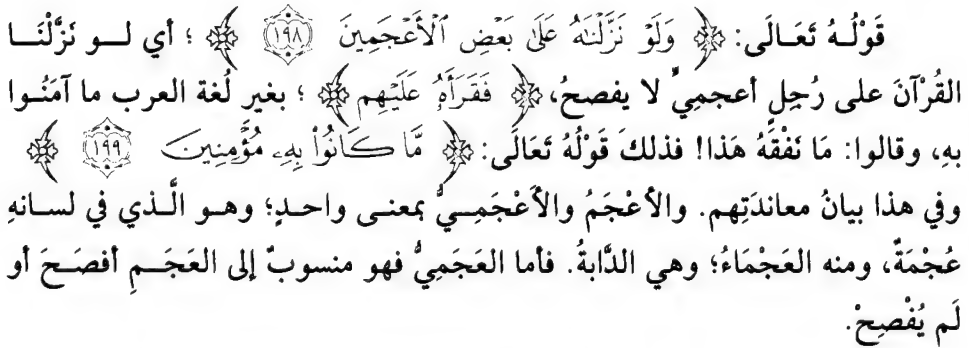 قَوْلُهُ تَعَالَى: ﴿ وَلَوْ نَزَّلْنَٰهُ عَلَىٰ بَعْضِ ٱلْأَعْجَمِينَ ١٩٨ ﴾ ؛ أي لو نَزَّلْنَا
القُرْآنَ على رُجِلٍ أعجميٍّ لا يفصحُ، ﴿ فَقَرَأَهُۥ عَلَيْهِم ﴾ ؛ بغيرِ لُغة العرب ما آمَنُوا
بهِ، وقالوا: مَا نَفْقَهُ هَذا! فذلكَ قَوْلُهُ تَعَالَى: ﴿ مَّا كَانُوا۟ بِهِۦ مُؤْمِنِينَ ١٩٩ ﴾
وفي هذا بيانُ معاندَتِهم. والأعْجَمُ والأَعْجَمِيُّ بمعنى واحدٍ؛ وهو الَّذي في لسانهِ
عُجْمَةٌ، ومنه العَجْمَاءُ؛ وهي الدَّابةُ. فأما العَجَمِيُّ فهو منسوبٌ إلى العَجَمِ أفصَحَ أو
لَم يُفْصِحْ.